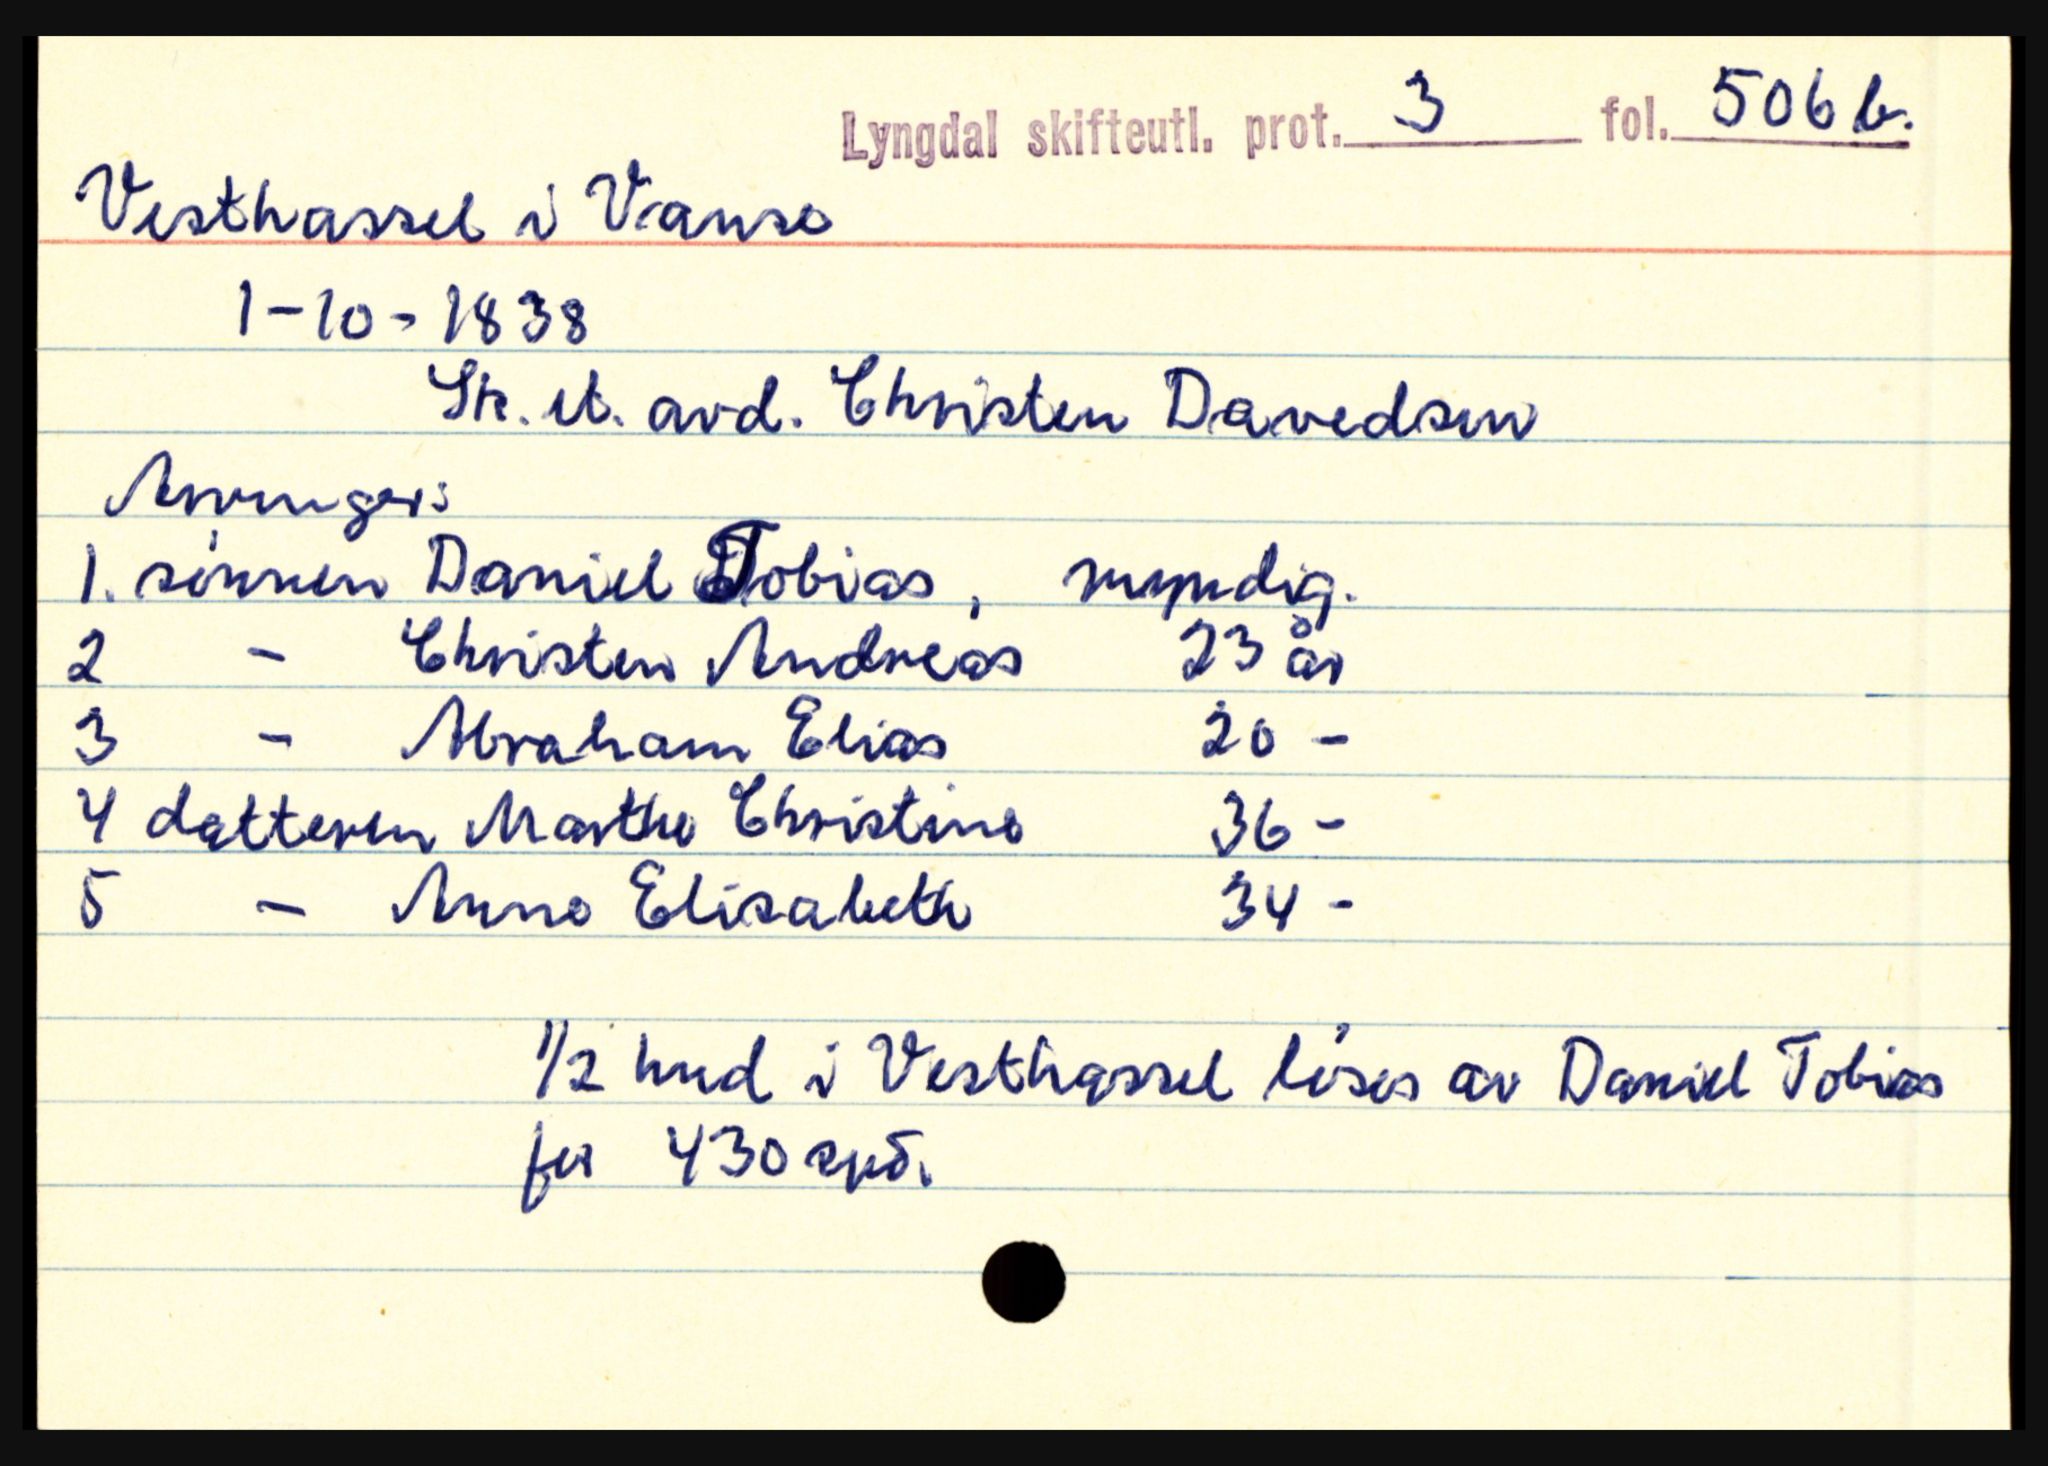 Lyngdal skifteutl. prot. 3 fol. 506 b.
Vesthassel i Vanse
1-10-1838
Sk. et. avd. Christen Davedsen
Arvinger:
1. sönnen Daniel Tobias, myndig.
2 - Christen Andreas 23 år
3 - Abraham Elias 20 -
4 datteren Marthe Christine 36 -
5 - Anne Elisabeth 34 -
1/2 hud i Vesthassel löses av Daniel Tobias
for 430 spd.